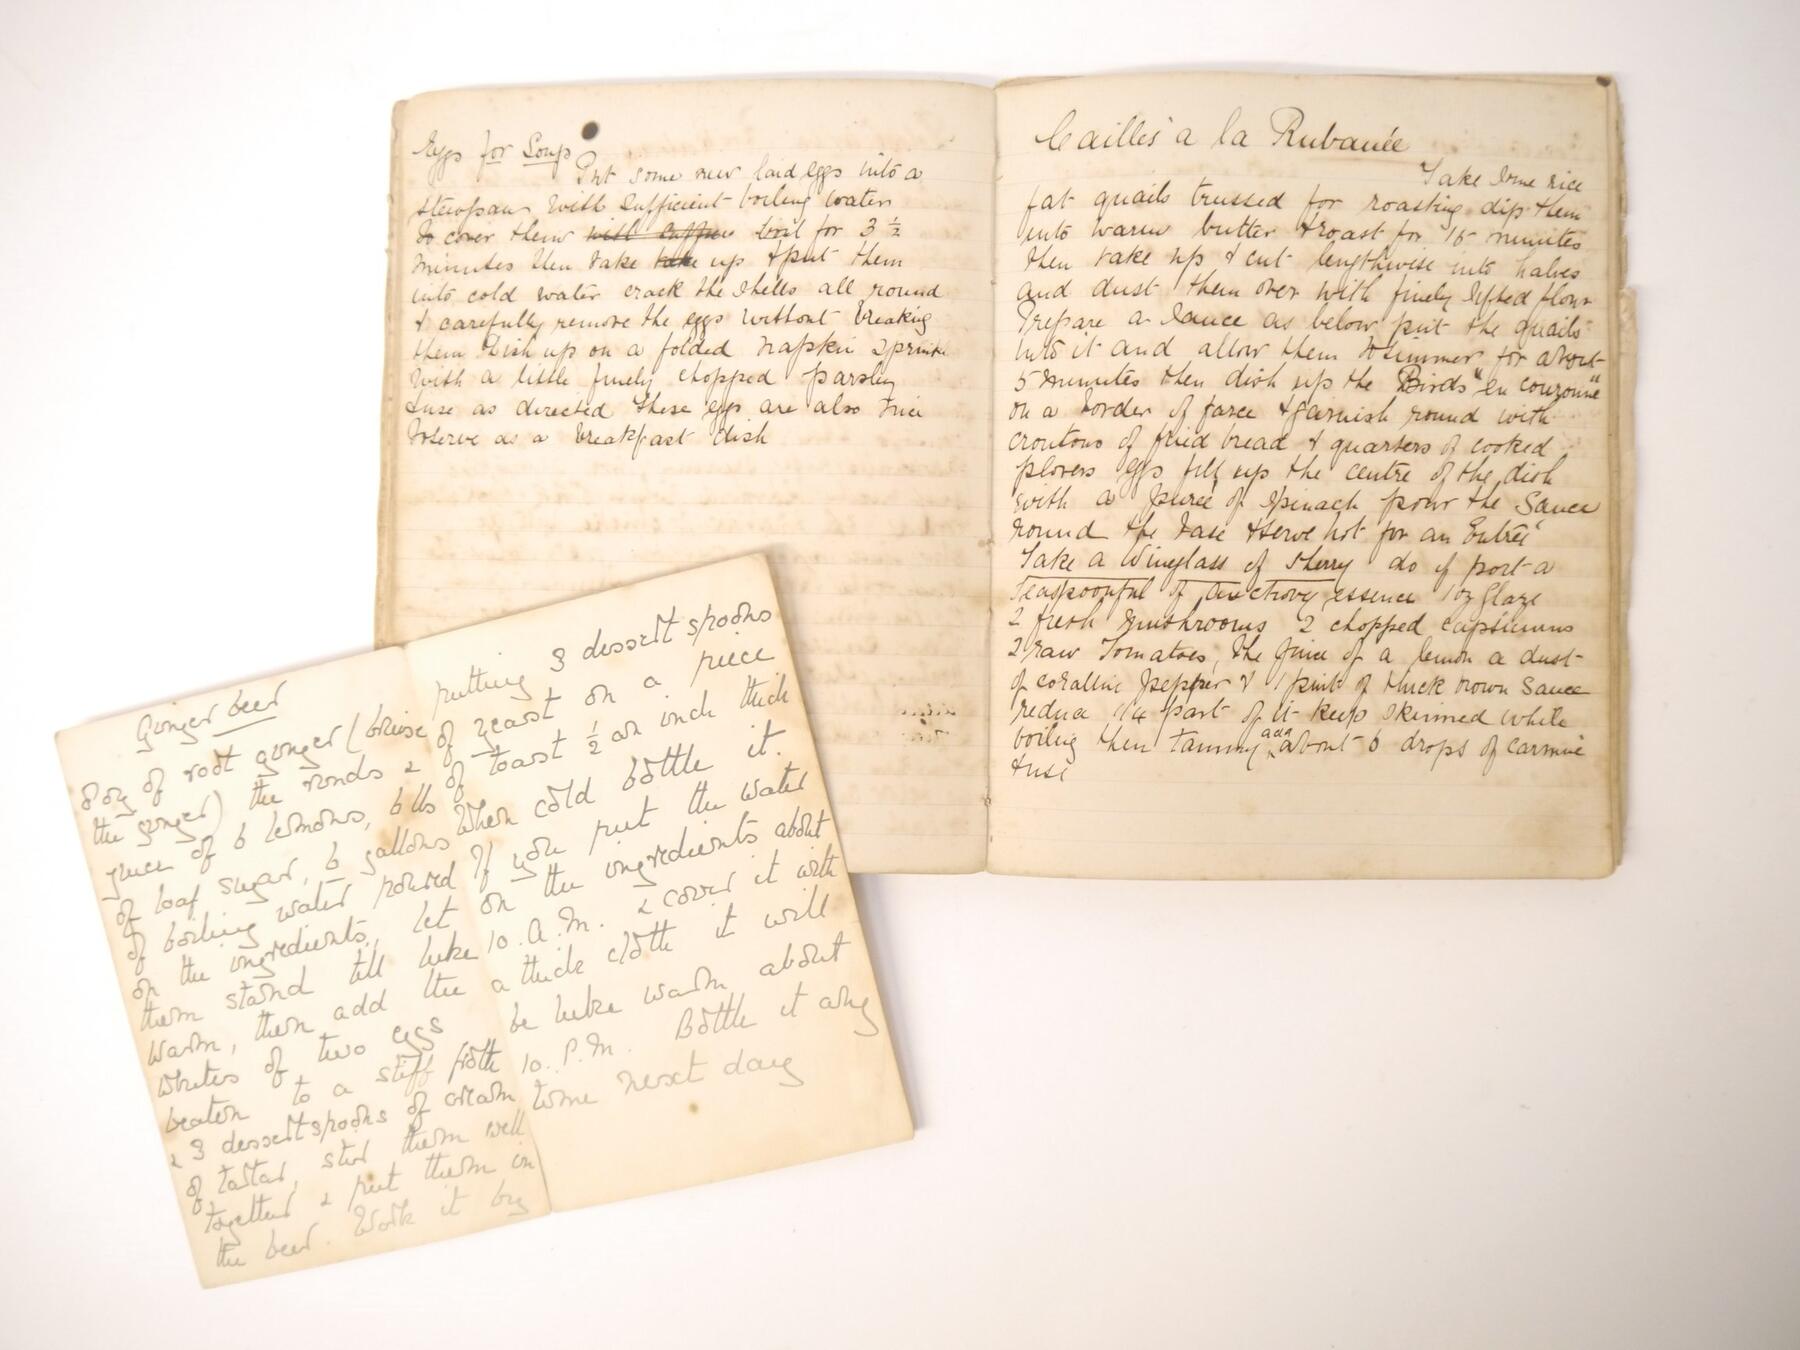 Eggs for Soup
Put some new laid eggs into a
stewpan with sufficient boiling water
to cover them with suffic boil for 3 ½
minutes then take take up & put them
into cold water crack the shells all round
& carefully remove the eggs without breaking
them dish up on a folded napkin sprinkle
with a little finely chopped parsley
& use as directed these eggs are also nice
to serve as a breakfast dish
Cailles a la Rubanée
Take some nice
fat quails trussed for roasting dip them
into warm butter & roast for 15 minutes
then take up & cut lengthwise into halves
and dust them over with finely sifted flour
Prepare a sauce as below put the quails
into it and allow them to simmer for about
5 minutes then dish up the Birds "en couronne"
on a border of farce & garnish round with
croutons of fried bread & quarters of cooked
plovers eggs fill up the centre of the dish
with a pureé of spinach pour the Sauce
round the base & serve hot for an Entreé
Take a Wineglass of Sherry do of port a
teaspoonful of anchovy essence 1 oz glaze
2 fresh mushrooms 2 chopped capsicums
2 raw Tomatoes, the juice of a lemon a dust
of coralline pepper & 1 pint of thick brown Sauce
reduce ¼ part of it keep skimmed while
boiling then tammy add about 6 drops of carmine
& use
Ginger beer
8 oz of root ginger (bruise
the ginger) the rinds &
juice of 6 lemons, 6 lbs
of loaf sugar, 6 gallons
of boiling water poured
on the ingredients, let
them stand till luke
warm, then add the
whites of two eggs
beaten to a stiff froth
& 3 dessertspoons of cream
of tartar, stir them well
together & put them in
the beer. Work it by
putting 3 dessert spoons
of yeast on a piece
of toast ½ an inch thick
When cold bottle it.
If you put the water
on the ingredients about
10. A.M. & cover it with
a thick cloth it will
be luke warm about
10. P.M. Bottle it any
time next day